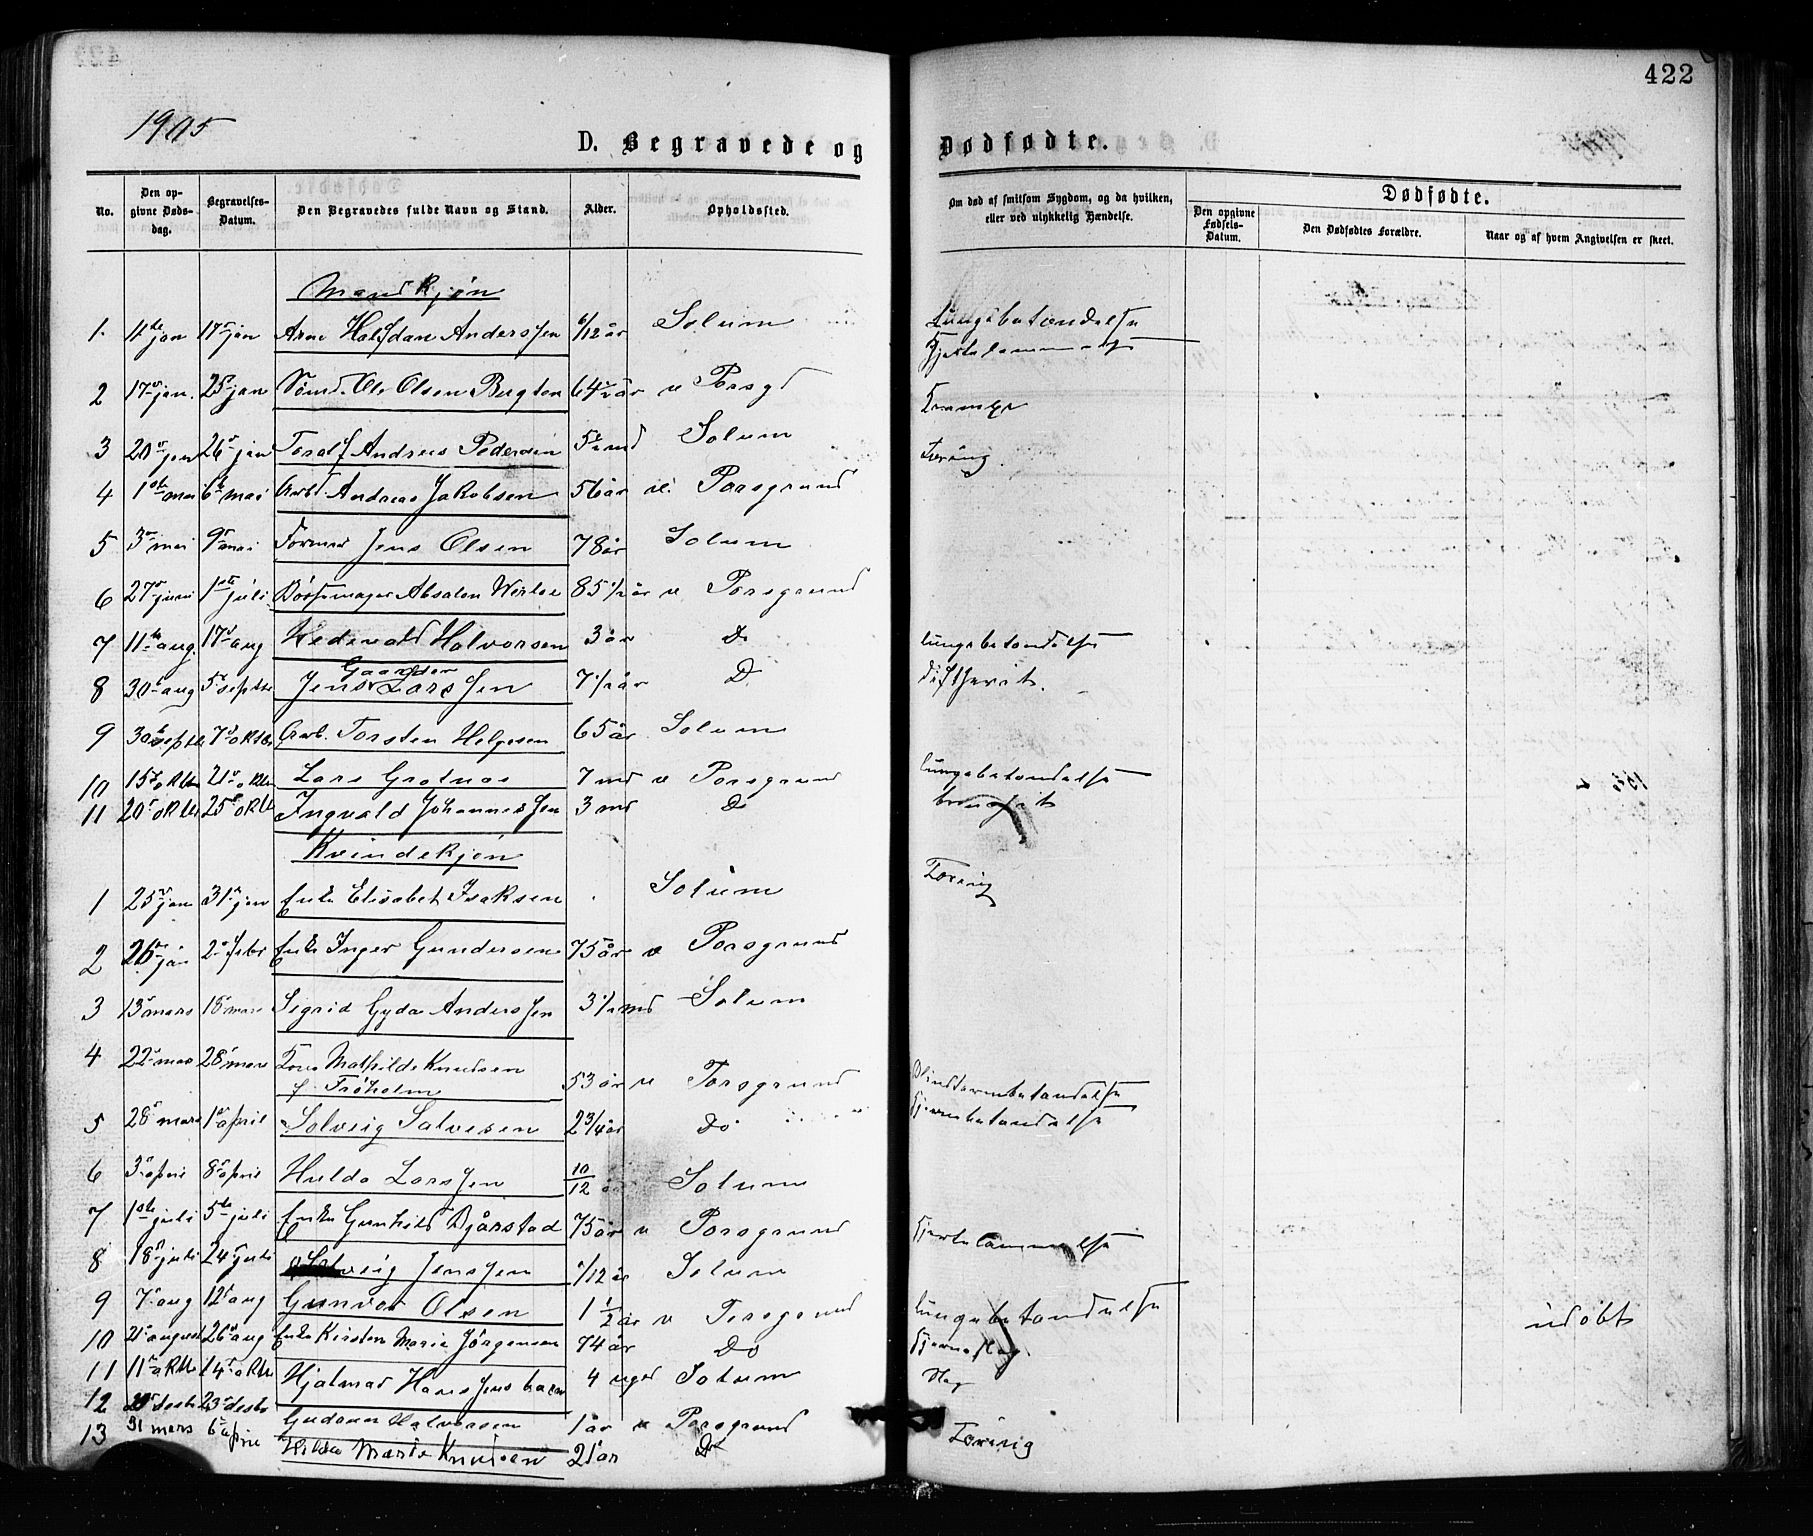 422
1905
D. Begravede og Dødfødte.
No.
Den opgivne Dødsdag.
Begravelses-Datum.
Den Begravedes fulde Navn og Stand.
Alder.
Opholdssted.
Om død af smitsom Sygdom, og da hvilken, eller ved ulykkelig Hændelse.
Dødfødte.
Den opgivne Fødsels-Datum.
Den Dødfødtes Forældre.
Naar og af hvem Angivelsen er skeet.
Mandkjøn
1. 11te jan 17 jan Arne Halfdan Anderssen 6/12 år Solum Lungebetændelse
2 17 jan. 25 jan Ole Olsen 64 1/2 år v Porsgd Hjertelammelse
3 20 jan 26 jan Toralf Andreas Pedersen 5 1/2 md Solum Krampe
4 1ste mai 6te mai Arbd. Andreas Jakobsen 56 år v. Porsgrund Tæring.
5 3 mai 9 mai Former Jens Olsen 78 år Solum
6 27 juni 1ste juli Absalon 85 1/2 år v Porsgrund
7 11te aug. 17 aug Hedevald Halvorsen 3 år Do lungebetændelse
8 30 aug 5 septbr Jens Gaarder Larssen 7 1/2 år D. diftherit.
9 30 septb 7 oktbr Arb. Torsten Helgesen 65 år Solum
10 15 oktbr 21 oktbr Lars Grotnæs 7 md v Porsgrund lungebetændelse
11 20 oktbr 25 oktb Ingvald Johannessen 3 md Do bronchit
Kvindekjøn
1 25 jan 31 jan Enke Elisabet Isaksen Solum Tæring
2 26 jan 2 febr Enke Inger Gundersen 75 år v Porsgrund
3 13 mars 18 mars Sigrid Gyda Anderssen 3 1/2 md Solum
4 22 mars 28 mars Kone Mathilde Knudsen
f. Frøholm 53 år v Porsgrund Blindtarmbetændelse
5 28 mars 1ste april Solveig Salvesen 2 3/4 år Do Hjernebetændelse
6 3 april 8 april Hulda Larssen 10/12 år Solum
7 1ste juli 5te juli Enke Gunhild Bjørstad 75 år v Porsgrund
8 18 juli 24 juli Solveig Jenssen /12 år Solum Hjertelammelse
9 7 aug 12 aug Gunvor Olsen 1 1/2 år v Porsgrund lungebetændelse
10 21 august 26 aug Enke Kirsten Marie Jørgensen 74 år Do Hjerneslag
11 11 oktbr 14 oktbr Hjalmar Hans Jens 4 uger Solum udøbt
12 23 desbr Gudrun Halvorsen 1 år v Porsgrund
13 31 mars 6 april Hilda Marie Knudsen 21 år Do Tæring